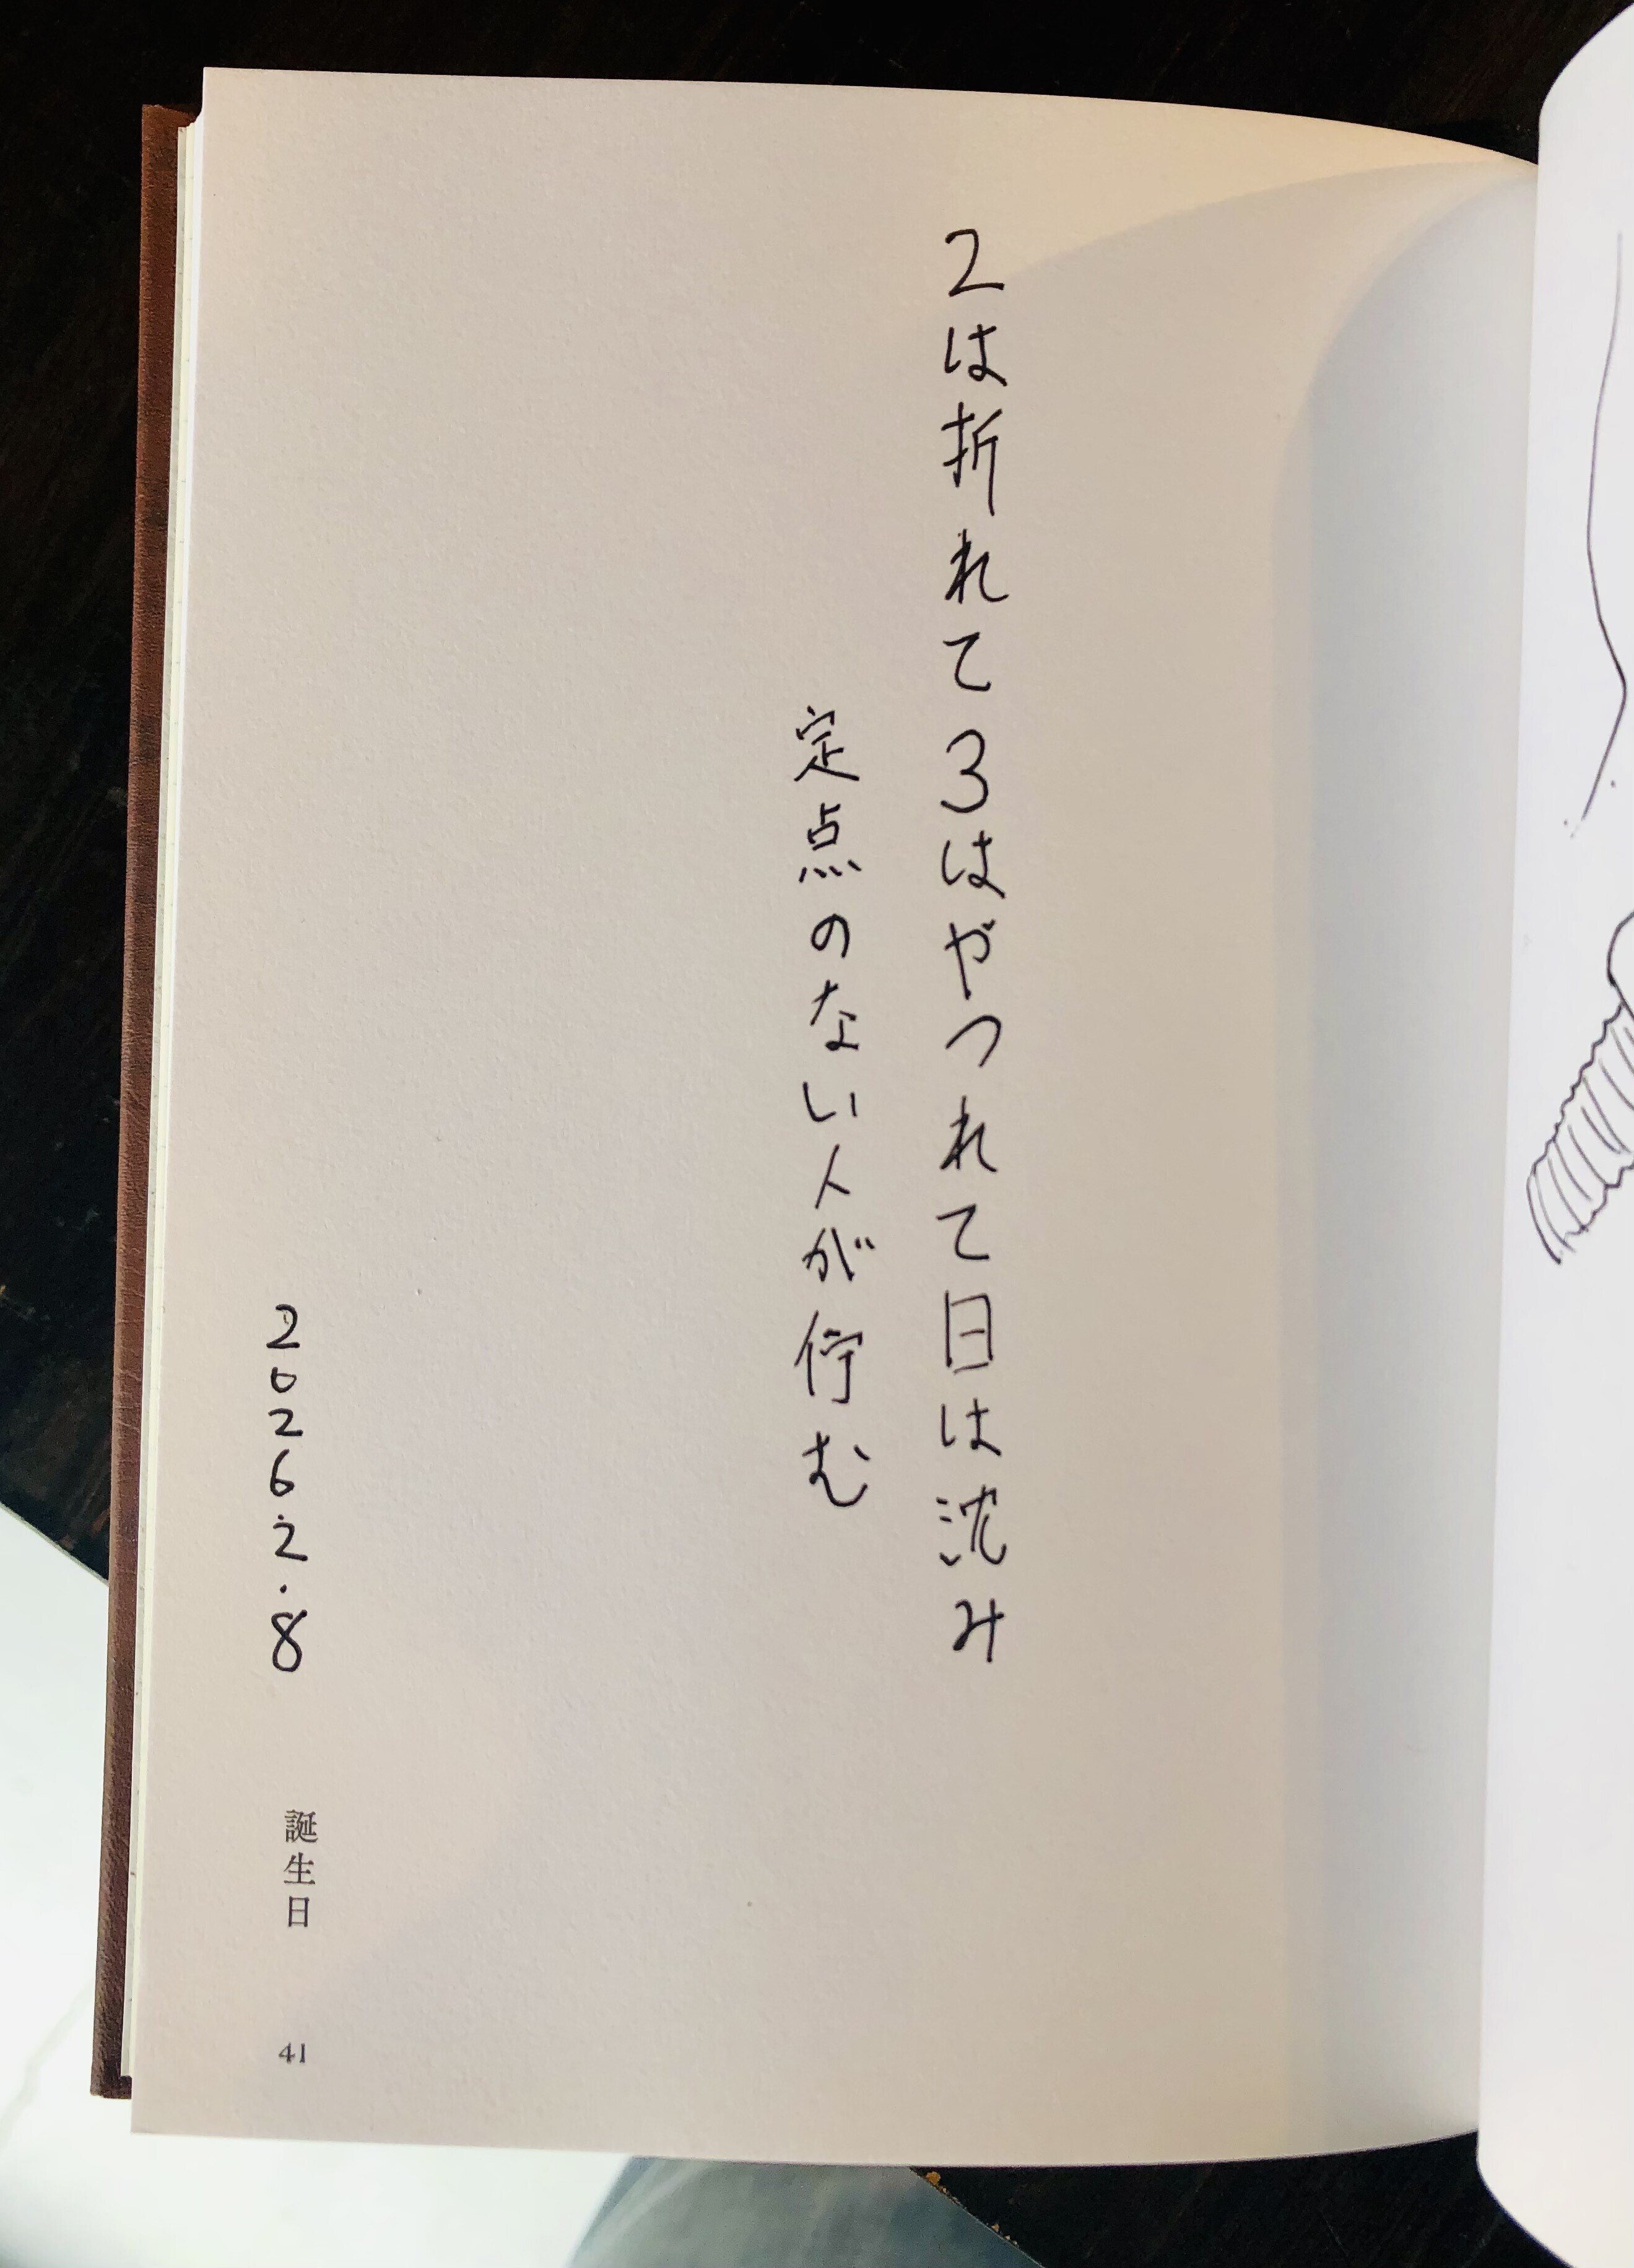 2は折れて3はやつれて日は沈み
定点のない人が佇む
2026.2.8
誕生日
41